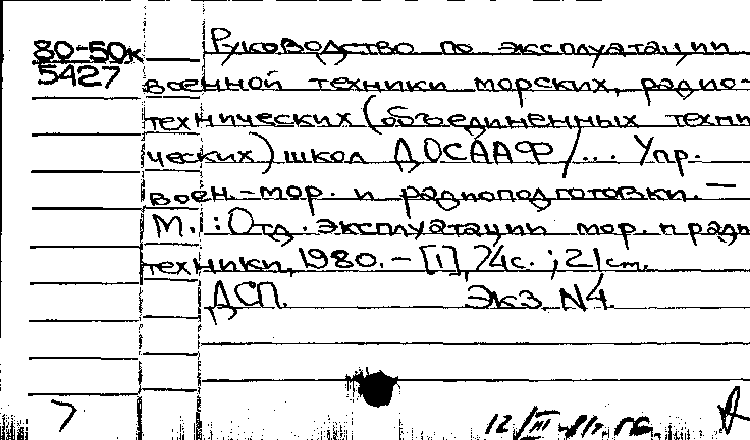 80-50к
5427
Руководство по эксплуатации
военной техники морских, радио-
технических (объединенных техни
ческих) школ ДОСААФ/... Упр.
воен.-мор. и радиоподготовки. —
М.: Отд. эксплуатации мор. и радио
техники, 1980. - [1], 74с.; 21 см.
ДСП. Экз. N4.
12/III-81г.